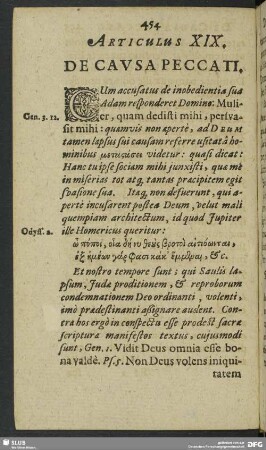 454
ARTICULUS XIX.
DE CAVSA PECCATI.
CUm accusatus de inobedientia sua
Adam responderet Domino: Muli-
Gen. 3. 12. er, quam dedisti mihi, persva-
sit mihi: quamvis non apertè, ad DEUM
tamen lapsus sui causam referre usitatâ ho-
minibus videtur: quasi dicat:
Hanc tu ipse sociam mihi junxisti, quæ me
in miserias tot atq, tantas præcipitem egit
svasione sua. Itaq, non defuerunt, qui a-
pertè incusarent posteà Deum, velut mali
quempiam architectum, id quod Jupiter
Odyss. α. ille Homericus queritur:
ὢ πόποι, οἷα δή νυ θεὺς βροτοὶ αἰτιόωνται,
ἐξ ἡμέων γάρ φασι κάκ' ἔμμεναι, &c.
Et nostro tempore sunt: qui Saulis la-
psum, Judæ proditionem, & reproborum
condemnationem Deo ordinanti, volenti,
imò prædestinanti aßignare audent. Con-
tra hos ergò in conspectu esse prodest sacræ
scripturæ manifestos textus, cujusmodi
sunt, Gen. 1. Vidit Deus omnia esse bo-
na valdè. Ps. 5. Non Deus volens iniqui-
tatem
SLUB